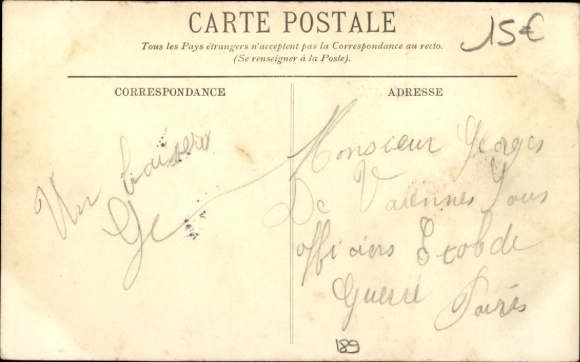 CARTE POSTALE
15€
Tous les Pays étrangers n'acceptent pas la Correspondance au recto.
(Se renseigner à la Poste).
CORRESPONDANCE
ADRESSE
Un baiser
Monsieur Georges
De Varennes Sous
officiers de
Guerre Paris
189